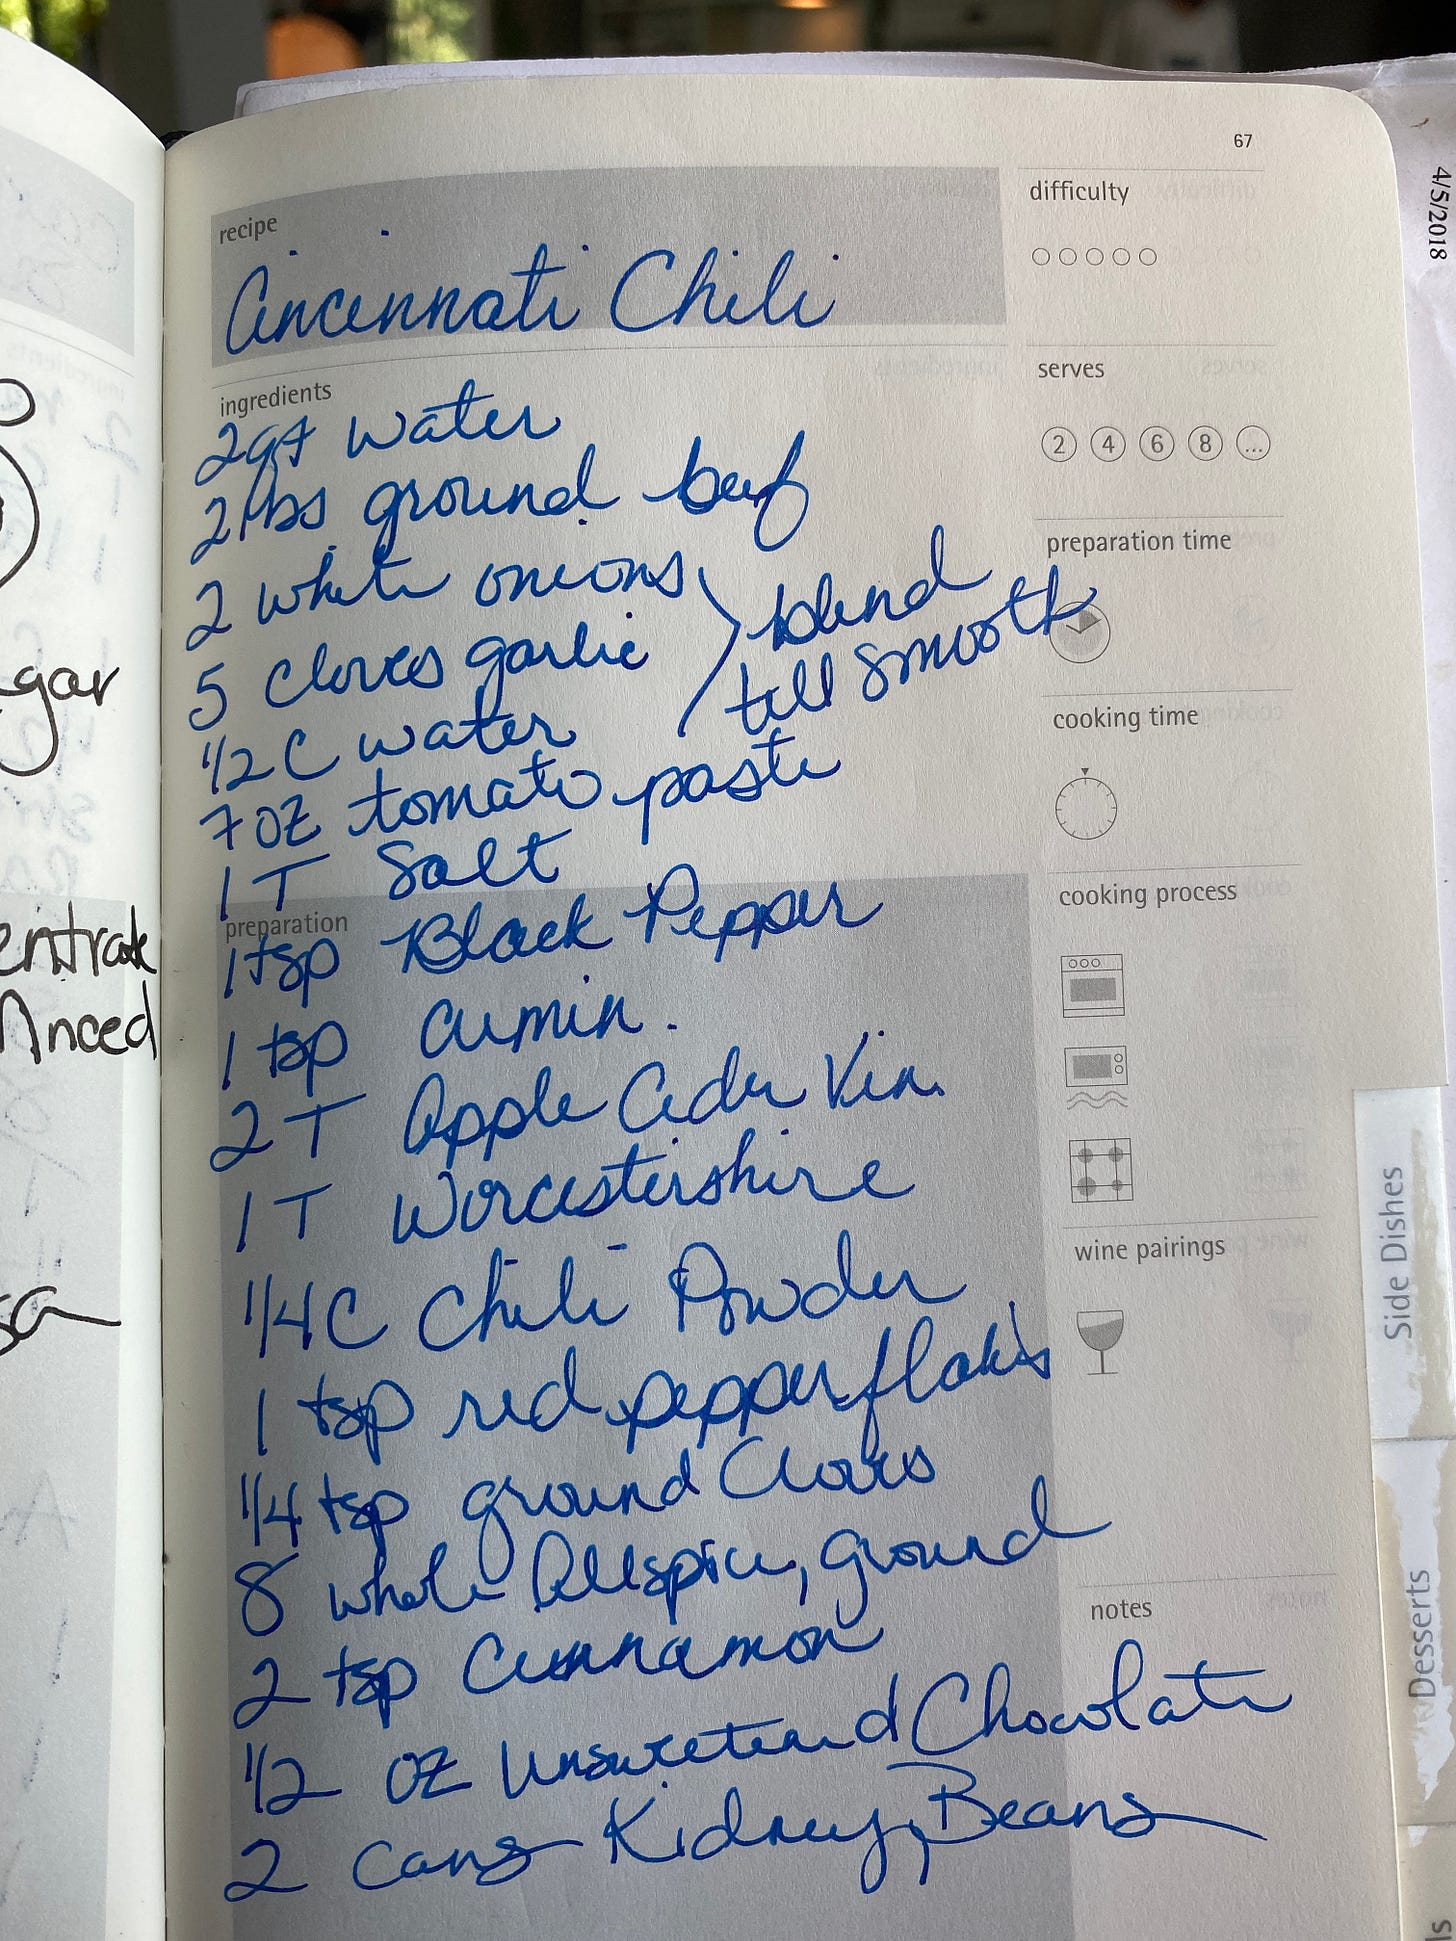 67
recipe
Cincinnati Chili
difficulty
ingredients
2qt water
2lbs ground beef
2 white onions
5 cloves garlic
1/2 C water
blend
till smooth
7 oz tomato paste
1 T Salt
preparation
1 tsp Black Pepper
1 tsp cumin.
2 T Apple Cider Vin.
1 T Worcestershire
1/4 C Chili Powder
1 tsp red pepper flakes
1/4 tsp ground Cloves
8 whole Allspice, ground
2 tsp Cinnamon
1/2 oz Unsweetened Chocolate
2 cans Kidney Beans
serves
2 4 6 8 ...
preparation time
cooking time
cooking process
wine pairings
notes
4/5/2018
Side Dishes
Desserts
gar
entrate
nced
sa
ls